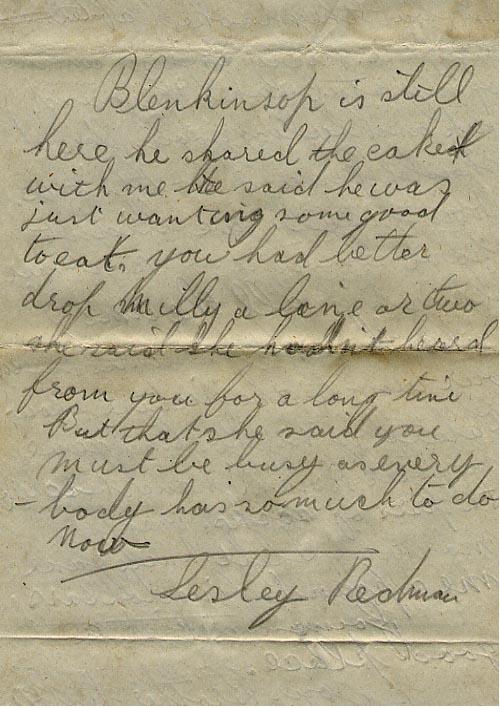 Blenkinsop is still
here he shared the cake
with me He said he was
just wanting some good
to eat. you had better
drop Milly a line or two
she said she hadn't heard
from you for a long time
But that she said you
must be busy as every
- body has so much to do
now
Lesley Redman